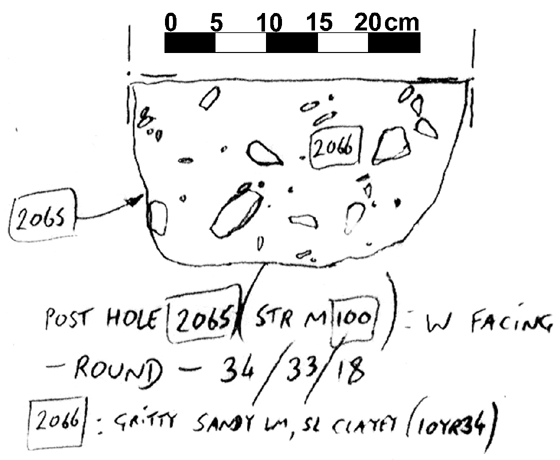 0 5 10 15 20 cm
2066
2065
POST HOLE 2065 (STR M 100) : W FACING
- ROUND - 34/33/18
2066 : GRITTY SANDY LM, SL CLAYEY (10YR34)